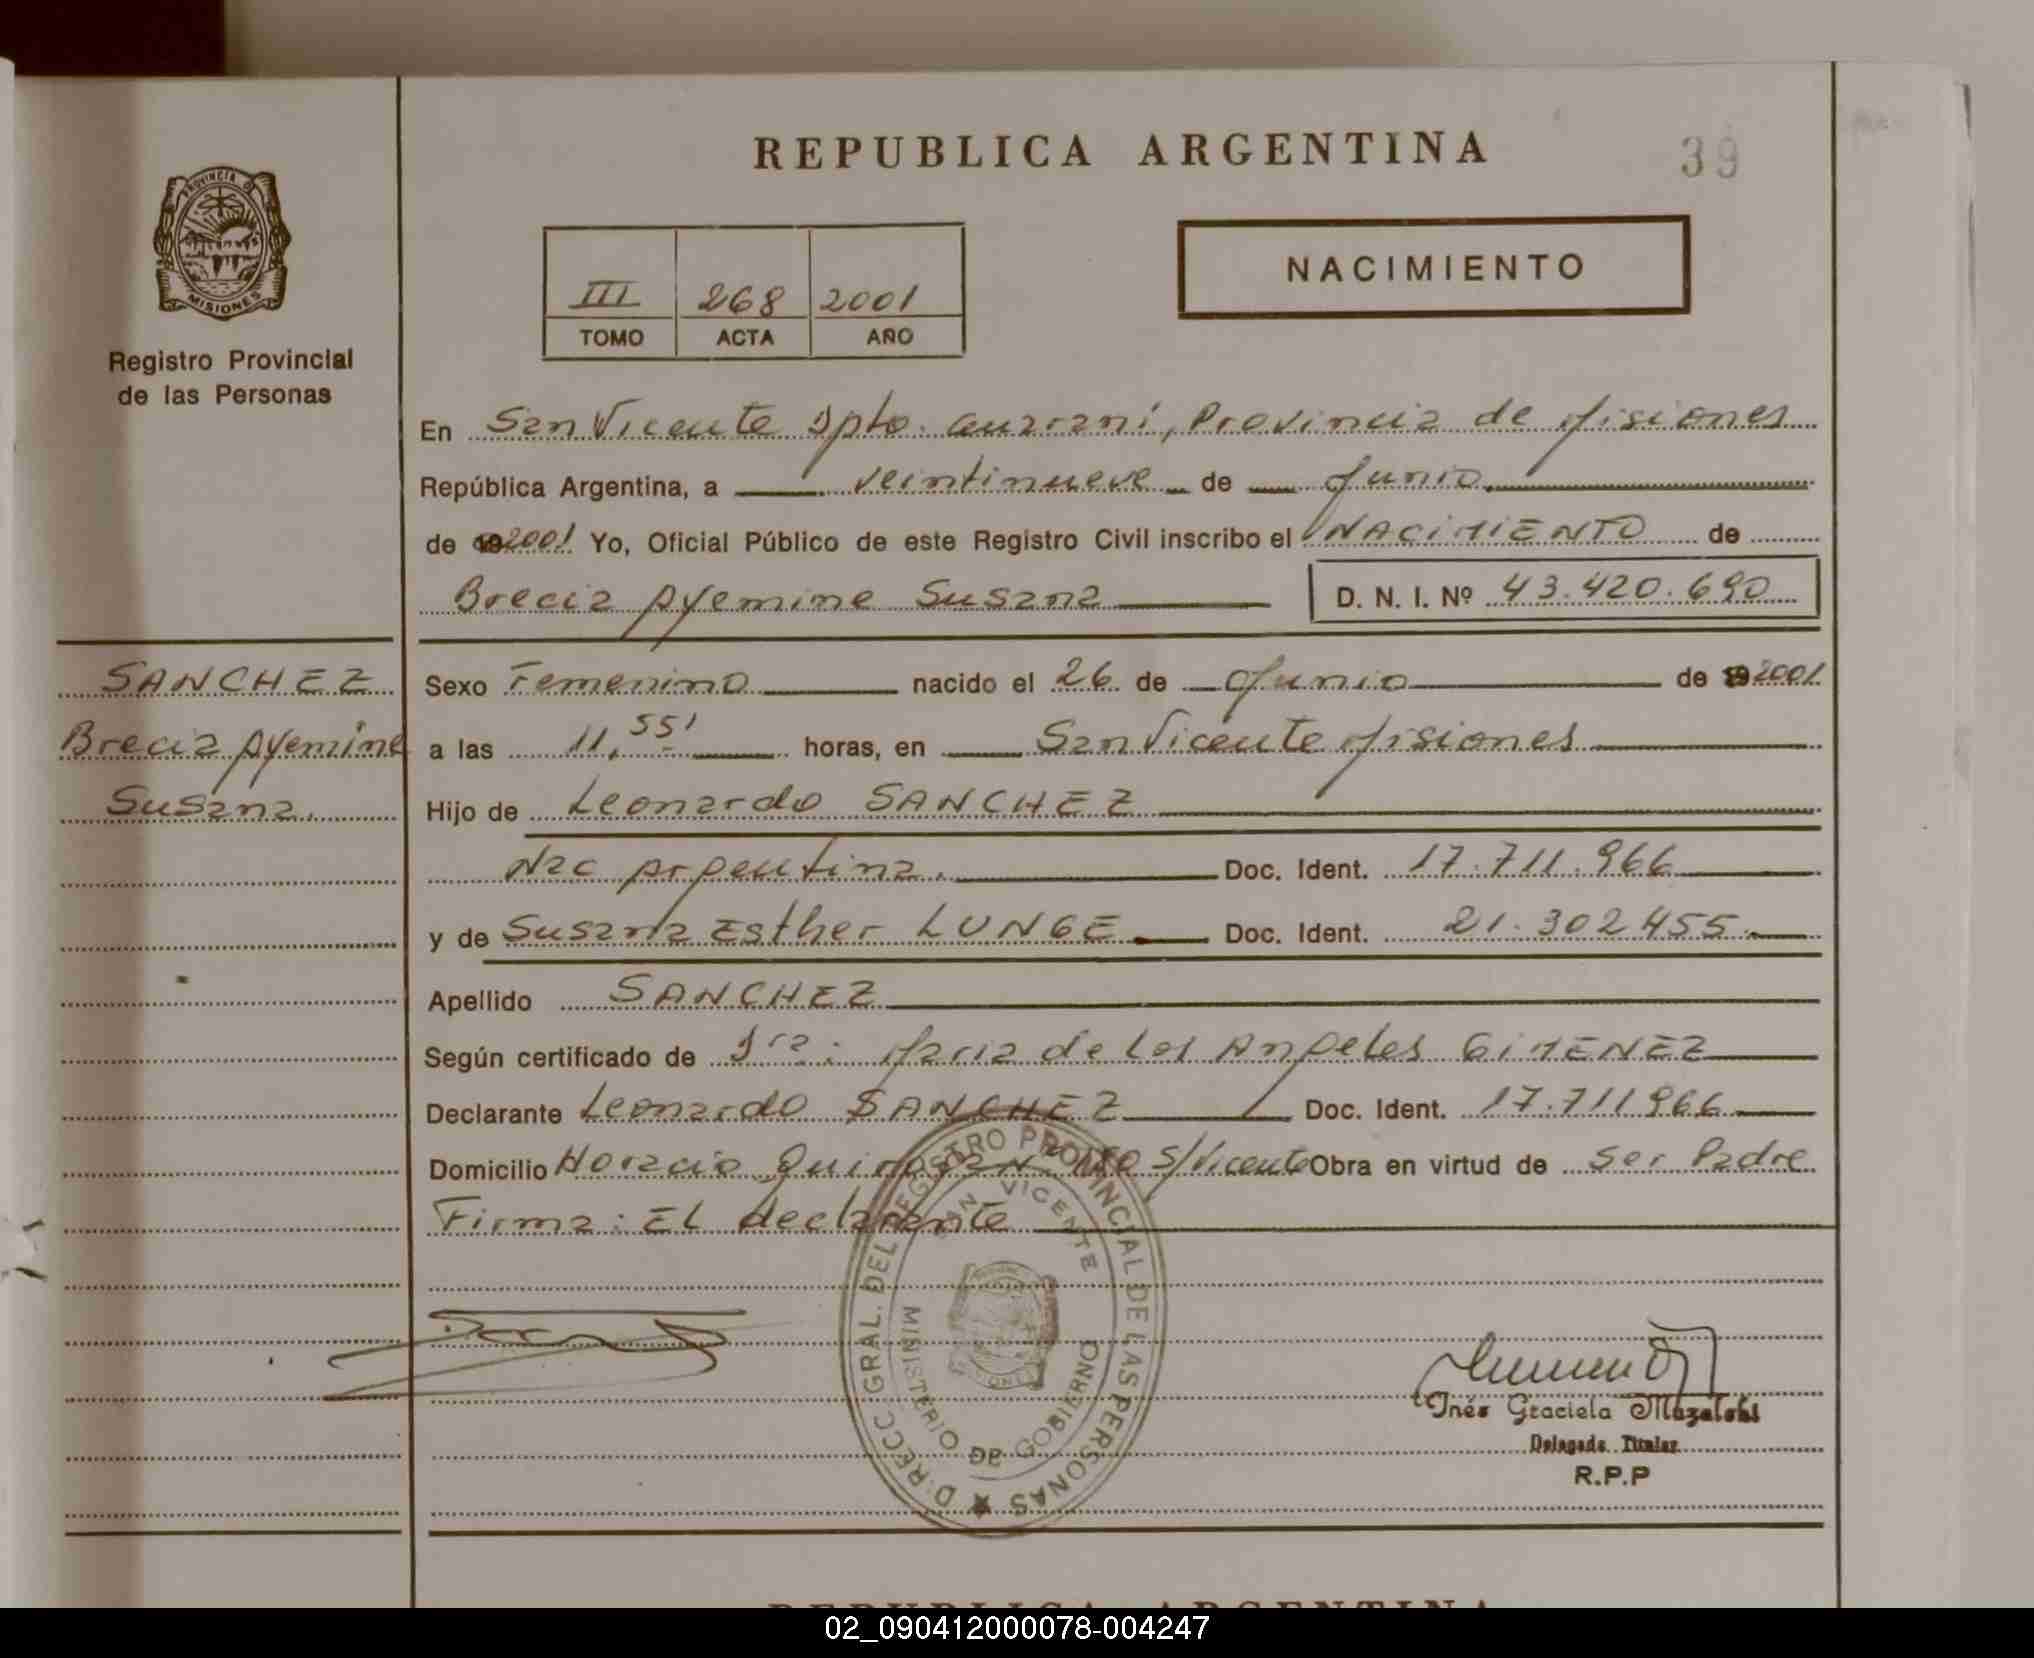 REPUBLICA ARGENTINA
39
PROVINCIA D
MISIONES
Registro Provincial
de las Personas
III 268 2001
TOMO ACTA AÑO
NACIMIENTO
En San Vicente Dpto. Guarani, Provincia de Misiones
República Argentina, a veintinueve de Junio
de 192001 Yo, Oficial Público de este Registro Civil inscribo el NACIMIENTO de
Brecia Ayemine Susana D. N. I. Nº 43.420.690
SANCHEZ
Brecia Ayemine
Susana.
Sexo Femenino nacido el 26 de Junio de 192001
a las 11,55' horas, en San Vicente Misiones
Hijo de Leonardo SANCHEZ
Nac Argentina. Doc. Ident. 17.711.966
y de Susana Esther LUNGE Doc. Ident. 21.302455.
Apellido SANCHEZ
Según certificado de Dra: Maria de Los Angeles GIMENEZ
Declarante Leonardo SANCHEZ Doc. Ident. 17.711966
Domicilio Horacio S/Vicente Obra en virtud de Ser Padre
Firma: El declarante
DIRECC. GRAL. DEL REGISTRO PROVINCIAL DE LAS PERSONAS
SAN VICENTE
MINISTERIO DE GOBIERNO
Inés Graciela
Delegada Titular
R.P.P
REPUBLICA ARGENTINA
02_090412000078-004247